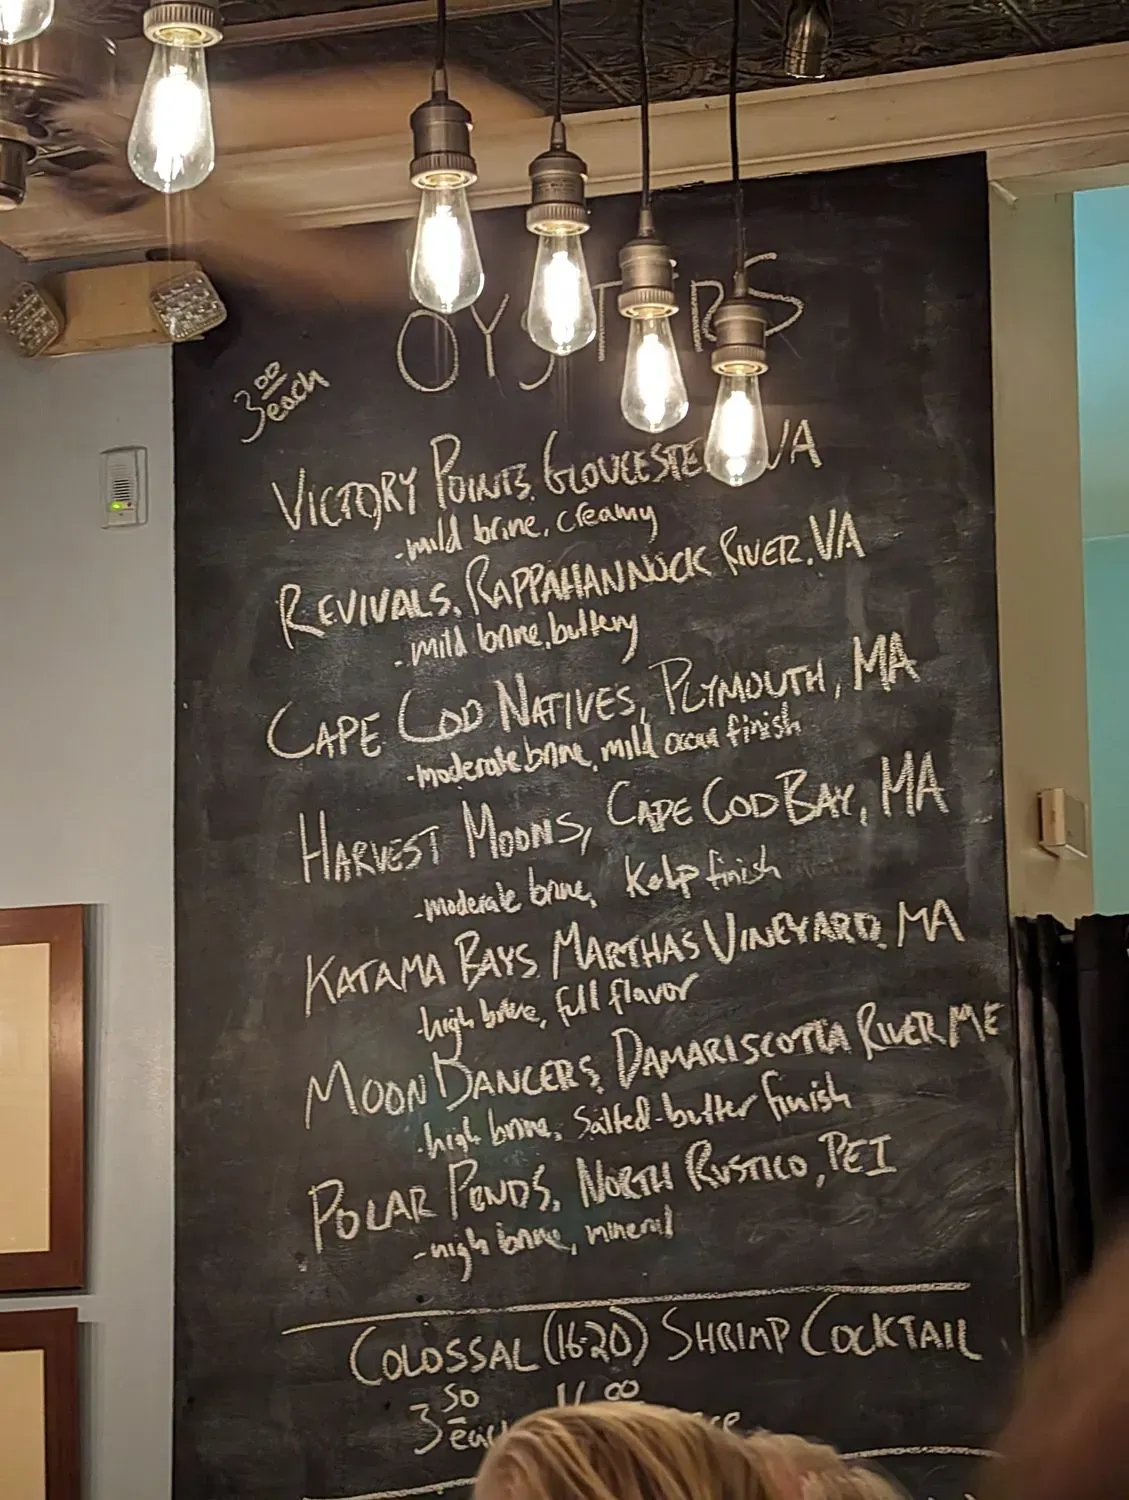 OYSTERS
3.00 each
VICTORY POINTS, GLOUCESTER, VA
-mild brine, creamy
REVIVALS, RAPPAHANNOCK RIVER, VA
-mild brine, buttery
CAPE COD NATIVES, PLYMOUTH, MA
-moderate brine, mild finish
HARVEST MOONS, CAPE COD BAY, MA
-moderate brine, Kelp finish
KATAMA BAYS, MARTHAS VINEYARD, MA
-high brine, full flavor
MOON DANCERS, DAMARISCOTTA RIVER ME
-high brine, salted-butter finish
POLAR PONDS, NORTH RUSTICO, PEI
-high brine, mineral
COLOSSAL (16-20) SHRIMP COCKTAIL
3.50 each